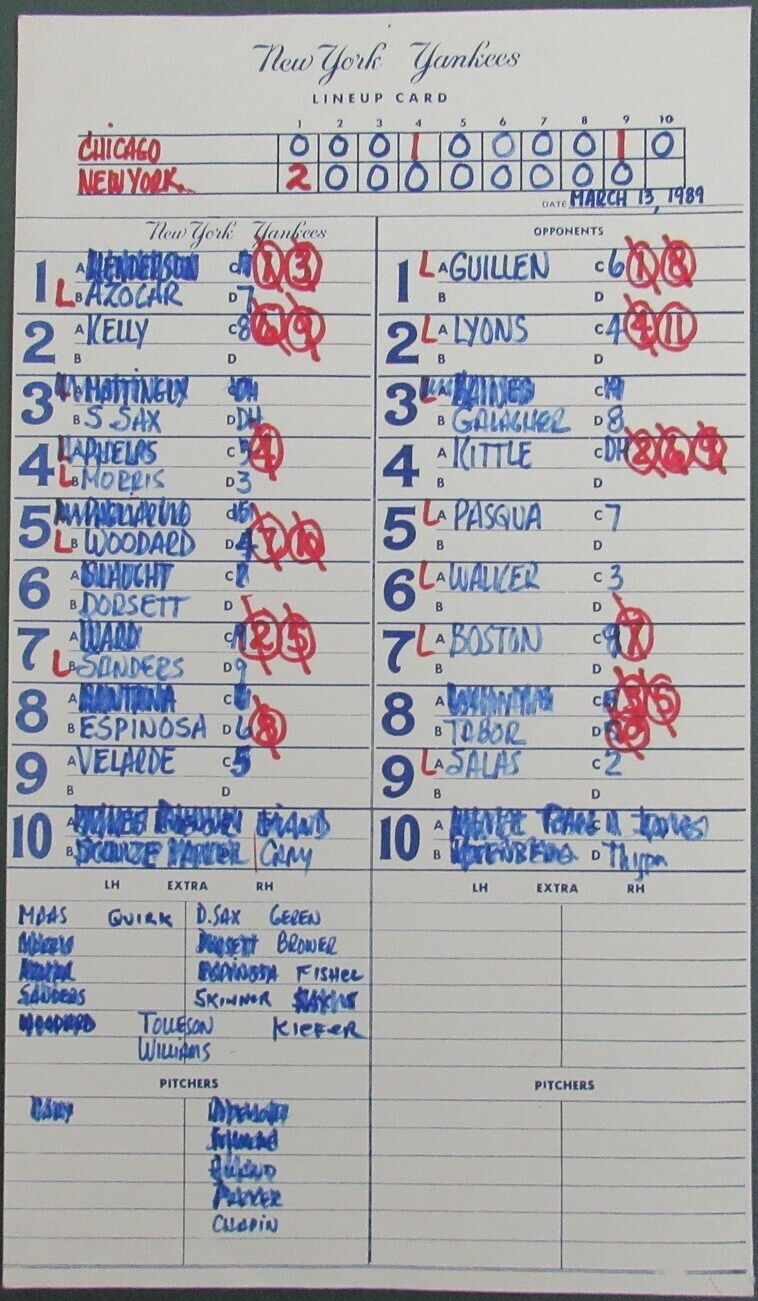 New York Yankees
LINEUP CARD
1 2 3 4 5 6 7 8 9 10
CHICAGO 0 0 0 1 0 0 0 0 1 0
NEW YORK 2 0 0 0 0 0 0 0 0
DATE MARCH 13, 1989
New York Yankees
1 A HENDERSON C 1 3
L B AZOCAR D 7
2 A KELLY C 8 6 9
B D
3 A MATTINGLY C DH
B S SAX D DH
4 L A PHELPS C 3 4
L B MORRIS D 3
5 A PAGLIARULO C 5
L B WOODARD D 4 7 10
6 A SLAUGHT C 2
B DORSETT D
7 A WARD C 9 2 5
L B SANDERS D 9
8 A SANTANA C 6
B ESPINOSA D 6 8
9 A VELARDE C 5
B D
10 A
B CARY
OPPONENTS
1 L A GUILLEN C 6 1 8
B D
2 L A LYONS C 4 4 11
B D
3 L A C
B GALAGHER D 8
4 A KITTLE C DH 2 6 9
B D
5 L A PASQUA C 7
B D
6 L A WALKER C 3
B D
7 L A BOSTON C 9 7
B D
8 A C 5
B TABOR D
9 L A SALAS C 2
B D
10 A
B D
LH EXTRA RH
MAAS QUIRK D.SAX GEREN
DORSETT BROWER
ESPINOSA FISHEL
SANDERS SKINNOR
WOODARD TOLLESON KIEFER
WILLIAMS
PITCHERS
CARY
PARKER
CHAPIN
LH EXTRA RH
PITCHERS